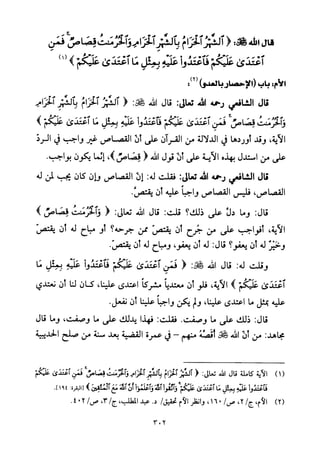 قال الله ﷻ: ﴿ الشَّهْرُ الْحَرَامُ بِالشَّهْرِ الْحَرَامِ وَالْحُرُمَاتُ قِصَاصٌ ۚ فَمَنِ
اعْتَدَىٰ عَلَيْكُمْ فَاعْتَدُوا عَلَيْهِ بِمِثْلِ مَا اعْتَدَىٰ عَلَيْكُمْ ﴾ (١)
الأم: باب (الإحصار بالعدو) (٢):
قال الشافعي رحمه الله تعالى: قال الله: ﴿ الشَّهْرُ الْحَرَامُ بِالشَّهْرِ الْحَرَامِ
وَالْحُرُمَاتُ قِصَاصٌ ۚ فَمَنِ اعْتَدَىٰ عَلَيْكُمْ فَاعْتَدُوا عَلَيْهِ بِمِثْلِ مَا اعْتَدَىٰ عَلَيْكُمْ ﴾
الآية، وقد أوردها في الدلالة من القرآن على أن القصاص غير واجب في الردّ
على من استدل بهذه الآية على أنّ قول الله ﴿ قِصَاصٌ ﴾، إنّما يكون بواجب.
قال الشافعي رحمه الله تعالى: فقلت له: إنّ القصاص وإن كان يجب لمن له
القصاص، فليس القصاص واجباً عليه أن يقتصّ.
قال: وما دلّ على ذلك؟ قلت: قال الله تعالى: ﴿ وَالْحُرُمَاتُ قِصَاصٌ ﴾
الآية، أفواجب على من جُرح أن يقتصّ ممن جرحه؟ أو مباح له أن يقتصّ
وخيْرٌ له أن يعفو؟ قال: له أن يعفو، ومباح له أن يقتصّ.
وقلت له: قال الله ﷻ: ﴿ فَمَنِ اعْتَدَىٰ عَلَيْكُمْ فَاعْتَدُوا عَلَيْهِ بِمِثْلِ مَا
اعْتَدَىٰ عَلَيْكُمْ ﴾ الآية، فلو أن معتدياً مشركاً اعتدى علينا، كان لنا أن نعتدي
عليه بمثل ما اعتدى علينا، ولم يكن واجباً علينا أن نفعل.
قال: ذلك على ما وصفت. فقلت: فهذا يدلك على ما وصفت، وما قال
مجاهد: من أنّ الله ﷻ أقصّهُ منهم – في عمرة القضية بعد سنة من صلح الحديبية
(١) الآية كاملة قال الله تعالى: ﴿ الشَّهْرُ الْحَرَامُ بِالشَّهْرِ الْحَرَامِ وَالْحُرُمَاتُ قِصَاصٌ ۚ فَمَنِ اعْتَدَىٰ عَلَيْكُمْ
فَاعْتَدُوا عَلَيْهِ بِمِثْلِ مَا اعْتَدَىٰ عَلَيْكُمْ ۚ وَاتَّقُوا اللَّهَ وَاعْلَمُوا أَنَّ اللَّهَ مَعَ الْمُتَّقِينَ ﴾ [البقرة: ١٩٤].
(٢) الأم، ج/٢، ص/١٦٠، وانظر الأم تحقيق/ د. عبد المطلب، ج/٣، ص/٤٠٢.
٣٠٢